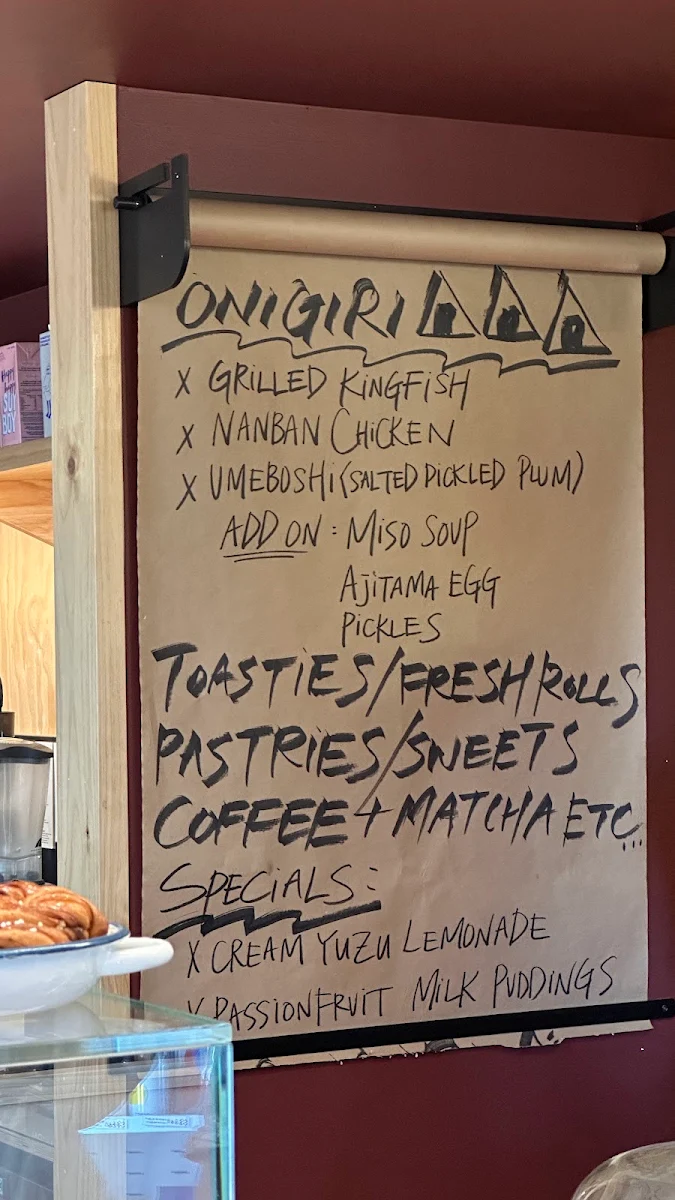 ONIGIRI
X GRILLED KINGFISH
X NANBAN CHICKEN
X UMEBOSHI (SALTED PICKLED PLUM)
ADD ON : MISO SOUP
AJITAMA EGG
PICKLES
TOASTIES/FRESH ROLLS
PASTRIES/SWEETS
COFFEE + MATCHA ETC...
SPECIALS:
X CREAM YUZU LEMONADE
X PASSIONFRUIT MILK PUDDINGS
SOY
BOY